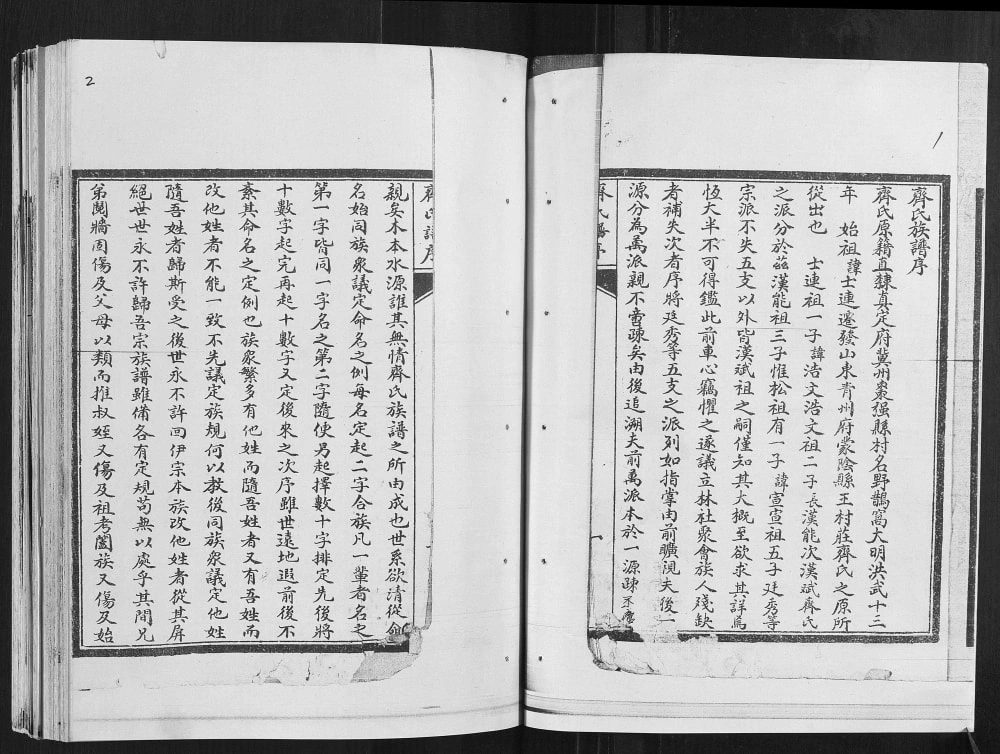 1
齊氏族譜序
齊氏原籍直隸真定府冀州棗强縣村名野鵲窩大明洪武十三
年 始祖諱士連遷發山東青州府蒙陰縣王村莊齊氏之原所
從出也 士連祖一子諱浩文浩文祖二子長漢能次漢斌齊氏
之派分於茲漢能祖三子惟松祖有一子諱宣宣祖五子廷秀等
宗派不失五支以外皆漢斌祖之嗣僅知其大概至欲求其詳焉
恆大半不可得鑑此前車心竊懼之遂議立林社聚會族人殘缺
者補失次者序將廷秀等五支之派列如指掌由前曠覌夫後一
源分為萬派親不啻疎矣由後追溯夫前萬派本於一源疎不啻
齊氏譜序
一
2
齊氏譜序
親矣木本水源誰其無情齊氏族譜之所由成也世系欲清從命
名始同族衆議定命名之例每名定起二字合族凡一輩者名之
第一字皆同一字名之第二字隨使另起擇數十字排定先後將
十數字起完再起十數字又定後來之次序雖世遠地遐前後不
紊其命名之定例也族衆繁多有他姓而隨吾姓者又有吾姓而
改他姓者不能一致不先議定族規何以教後同族衆議定他姓
隨吾姓者歸斯受之後世永不許回伊宗本族改他姓者從其屏
絕世世永不許歸吾宗族譜雖備各有定規苟無以處乎其間兄
弟鬩牆固傷及父母以類而推叔姪又傷及祖考闔族又傷及始